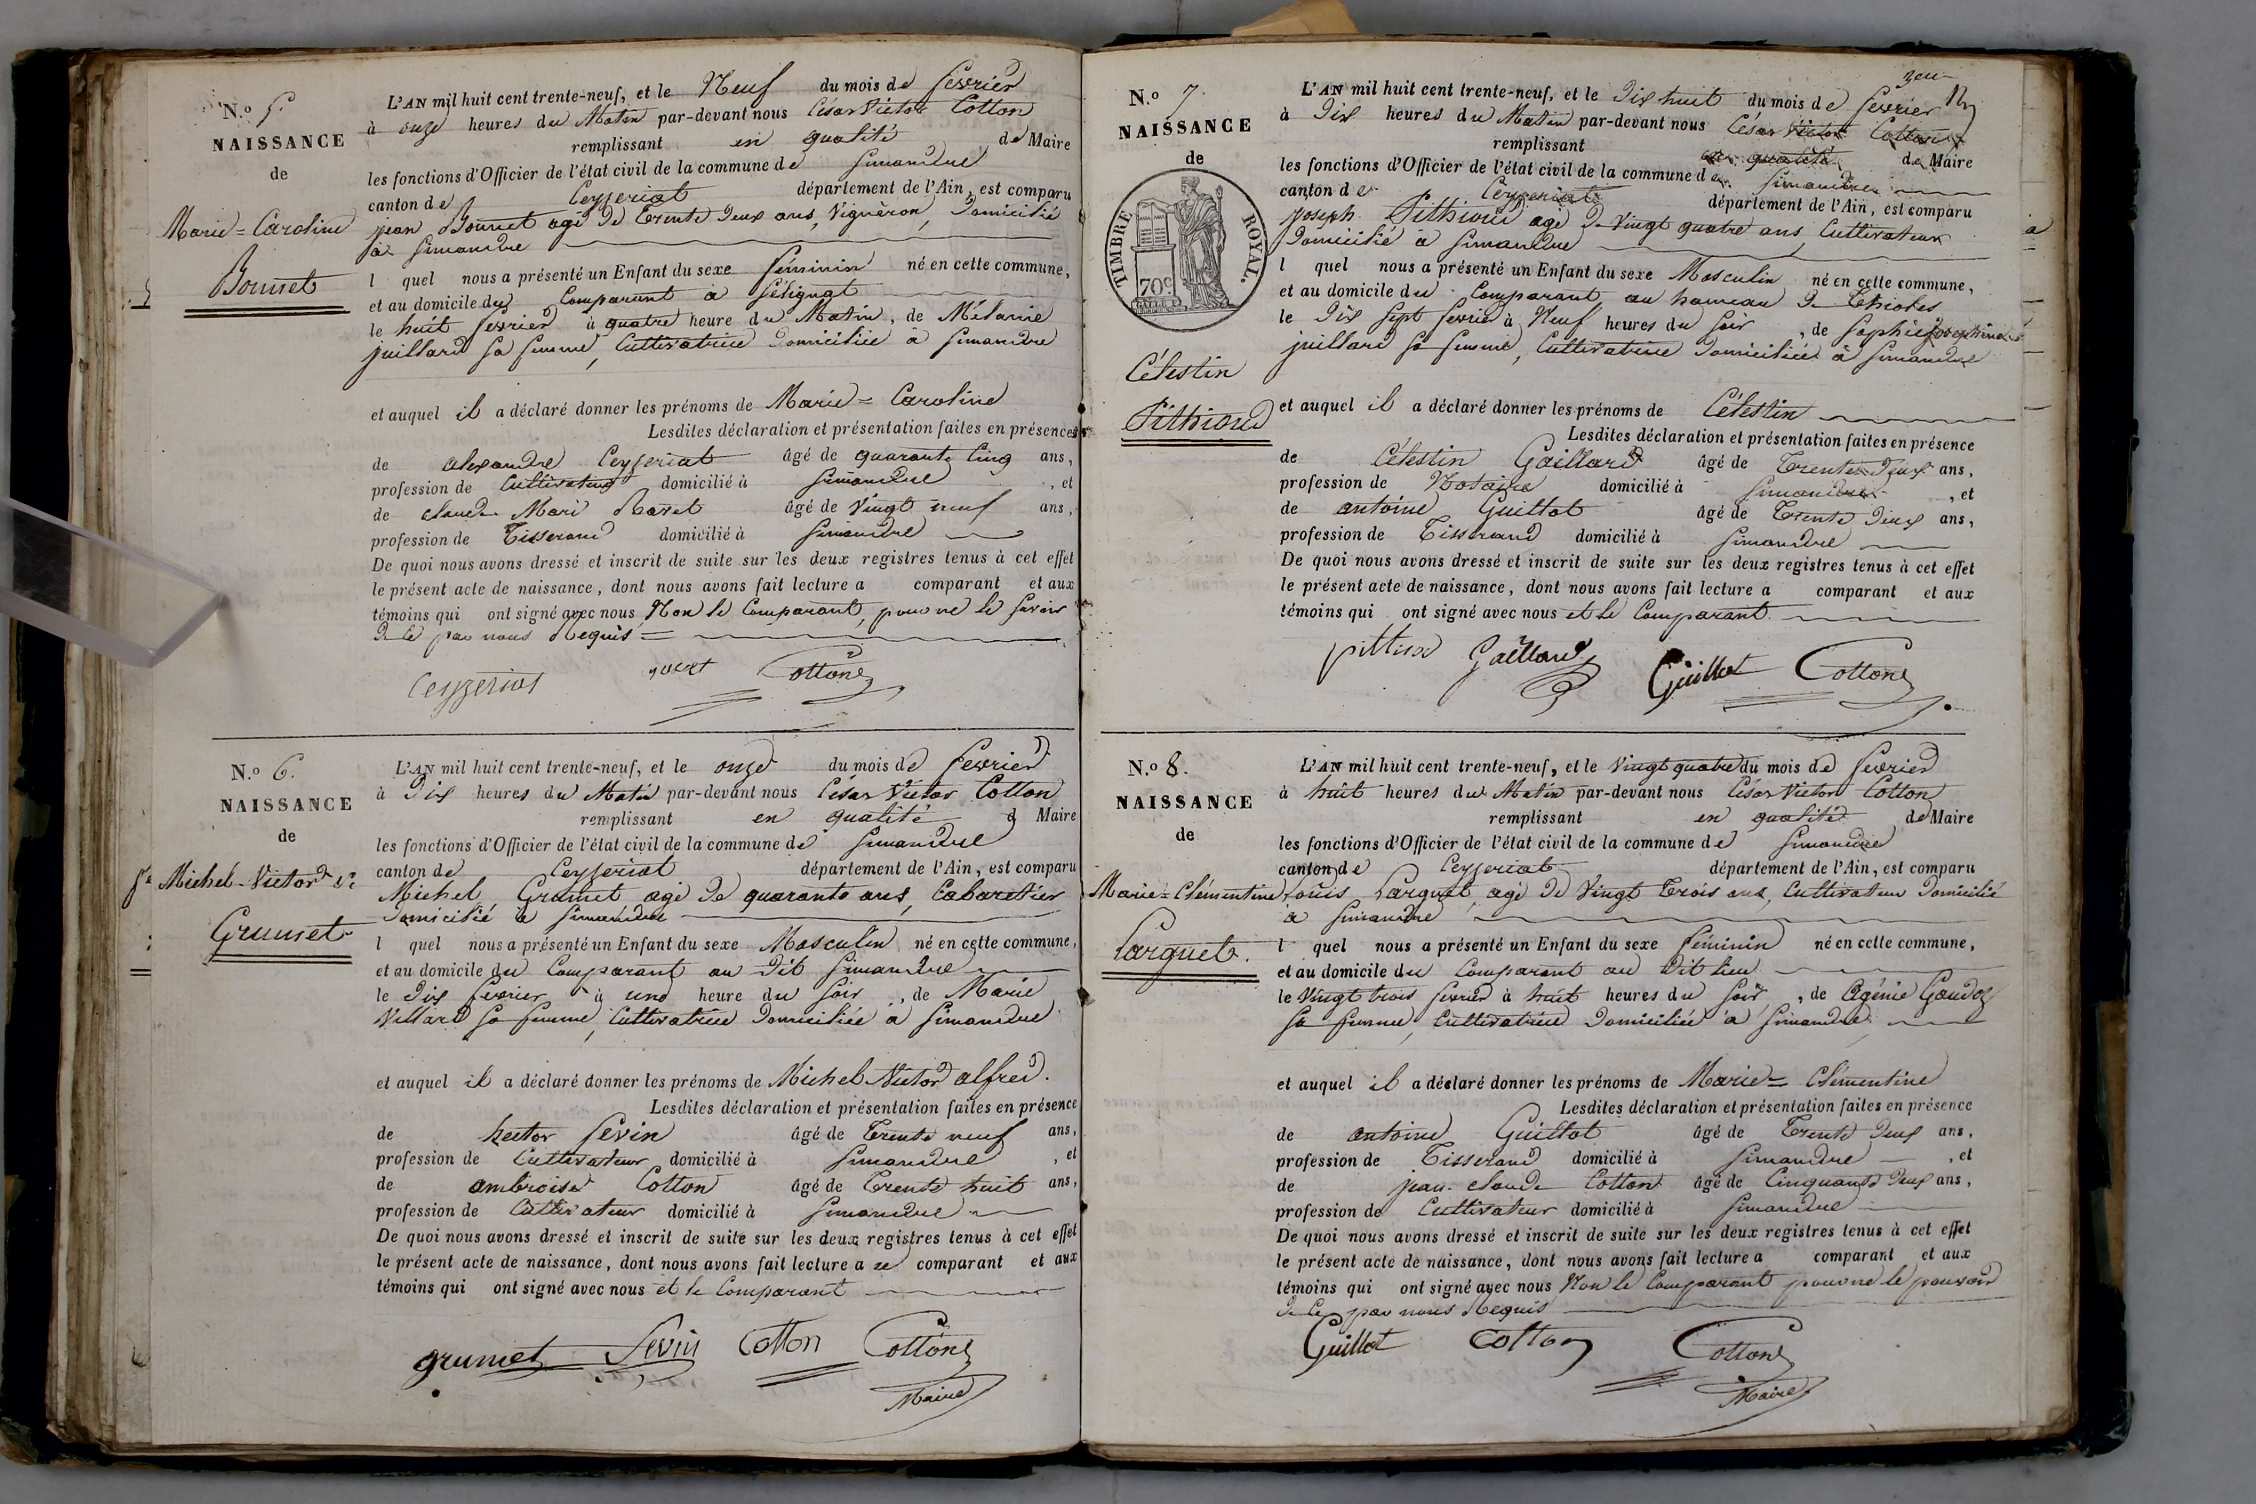 N.º 5
NAISSANCE
de
Marie = Caroline
Bonnet
L'AN mil huit cent trente-neuf, et le Neuf du mois de fevrier
à onze heures du Matin par-devant nous César Victor Cotton
remplissant en qualité de Maire
les fonctions d'Officier de l'état civil de la commune de Simandre
canton de Ceyzeriat département de l'Ain, est comparu
jean Bonnet agé de trente deux ans, Vigneron, Domicilié
à Simandre
l quel nous a présenté un Enfant du sexe féminin né en cette commune,
et au domicile du Comparant à Sélignat
le huit fevrier à quatre heure du Matin, de Mélanie
juillard sa femme, Cultivatrice Domiciliée à Simandre
et auquel il a déclaré donner les prénoms de Marie = Caroline
Lesdites déclaration et présentation faites en présences
de alexandre Ceyzeriat âgé de quarante cinq ans,
profession de Cultivateur domicilié à Simandre, et
de claude Mari âgé de Vingt neuf ans,
profession de Tisserand domicilié à Simandre
De quoi nous avons dressé et inscrit de suite sur les deux registres tenus à cet effet
le présent acte de naissance, dont nous avons fait lecture a comparant et aux
témoins qui ont signé avec nous, Non le Comparant, pour ne le savoir
de ce par nous Requis =
Ceyzeriat Cotton
N.º 6.
NAISSANCE
de
Michel-Victor
Grumet
L'AN mil huit cent trente-neuf, et le onze du mois de fevrier
à Dix heures du Matin par-devant nous César Victor Cotton
remplissant en qualité d Maire
les fonctions d'Officier de l'état civil de la commune de Simandre
canton de Ceyzeriat département de l'Ain, est comparu
Michel Grumet agé de quarante ans, Cabaretier
Domicilié à Simandre
l quel nous a présenté un Enfant du sexe Masculin né en cette commune,
et au domicile du Comparant au dit Simandre
le Dix fevrier à une heure du soir, de Marie
Villard sa femme, Cultivatrice Domiciliée à Simandre
et auquel il a déclaré donner les prénoms de Michel Victor alfred.
Lesdites déclaration et présentation faites en présence
de hector Sevin âgé de Trente neuf ans,
profession de Cultivateur domicilié à Simandre, et
de ambroise Cotton âgé de Trente huit ans,
profession de Cultivateur domicilié à Simandre
De quoi nous avons dressé et inscrit de suite sur les deux registres tenus à cet effet
le présent acte de naissance, dont nous avons fait lecture a comparant et aux
témoins qui ont signé avec nous et le Comparant
grumet Sevin Cotton Cotton
Maire
N.º 7.
NAISSANCE
de
TIMBRE ROYAL.
70c
Célestin
Pithioud
L'AN mil huit cent trente-neuf, et le Dix huit du mois de fevrier
à Dix heures du Matin par-devant nous César Victor Cotton
remplissant en qualité de Maire
les fonctions d'Officier de l'état civil de la commune de Simandre
canton de Ceyzeriat département de l'Ain, est comparu
joseph Pithioud agé de vingt quatre ans, Cultivateur
Domicilié à Simandre
l quel nous a présenté un Enfant du sexe Masculin né en cette commune,
et au domicile du Comparant au hameau de Thioles
le Dix Sept fevrier à Neuf heures du soir, de Sophie josephine
juillard sa femme, Cultivatrice Domiciliée à Simandre
et auquel il a déclaré donner les prénoms de Célestin
Lesdites déclaration et présentation faites en présence
de Célestin Gaillard âgé de Trente deux ans,
profession de Notaire domicilié à Simandre, et
de antoine Guillot âgé de Trente deux ans,
profession de Tisserand domicilié à Simandre
De quoi nous avons dressé et inscrit de suite sur les deux registres tenus à cet effet
le présent acte de naissance, dont nous avons fait lecture a comparant et aux
témoins qui ont signé avec nous et le Comparant
Gaillard Guillot Cotton
N.º 8.
NAISSANCE
de
Marie = Clémentine
Larguet.
L'AN mil huit cent trente-neuf, et le Vingt quatre du mois de fevrier
à huit heures du Matin par-devant nous César Victor Cotton
remplissant en qualité de Maire
les fonctions d'Officier de l'état civil de la commune de Simandre
canton de Ceyzeriat département de l'Ain, est comparu
Louis Larguet, agé de Vingt Trois ans, Cultivateur Domicilié
à Simandre
l quel nous a présenté un Enfant du sexe féminin né en cette commune,
et au domicile du Comparant au dit lieu
le Vingt trois fevrier à huit heures du soir, de Agénie Goudoz
sa femme, Cultivatrice Domiciliée à Simandre
et auquel il a déclaré donner les prénoms de Marie = Clémentine
Lesdites déclaration et présentation faites en présence
de antoine Guillot âgé de Trente deux ans,
profession de Tisserand domicilié à Simandre, et
de jean claude Cotton âgé de Cinquante deux ans,
profession de Cultivateur domicilié à Simandre
De quoi nous avons dressé et inscrit de suite sur les deux registres tenus à cet effet
le présent acte de naissance, dont nous avons fait lecture a comparant et aux
témoins qui ont signé avec nous Non le Comparant pour ne le pouvoir
de ce par nous Requis
Guillot Cotton Cotton
Maire